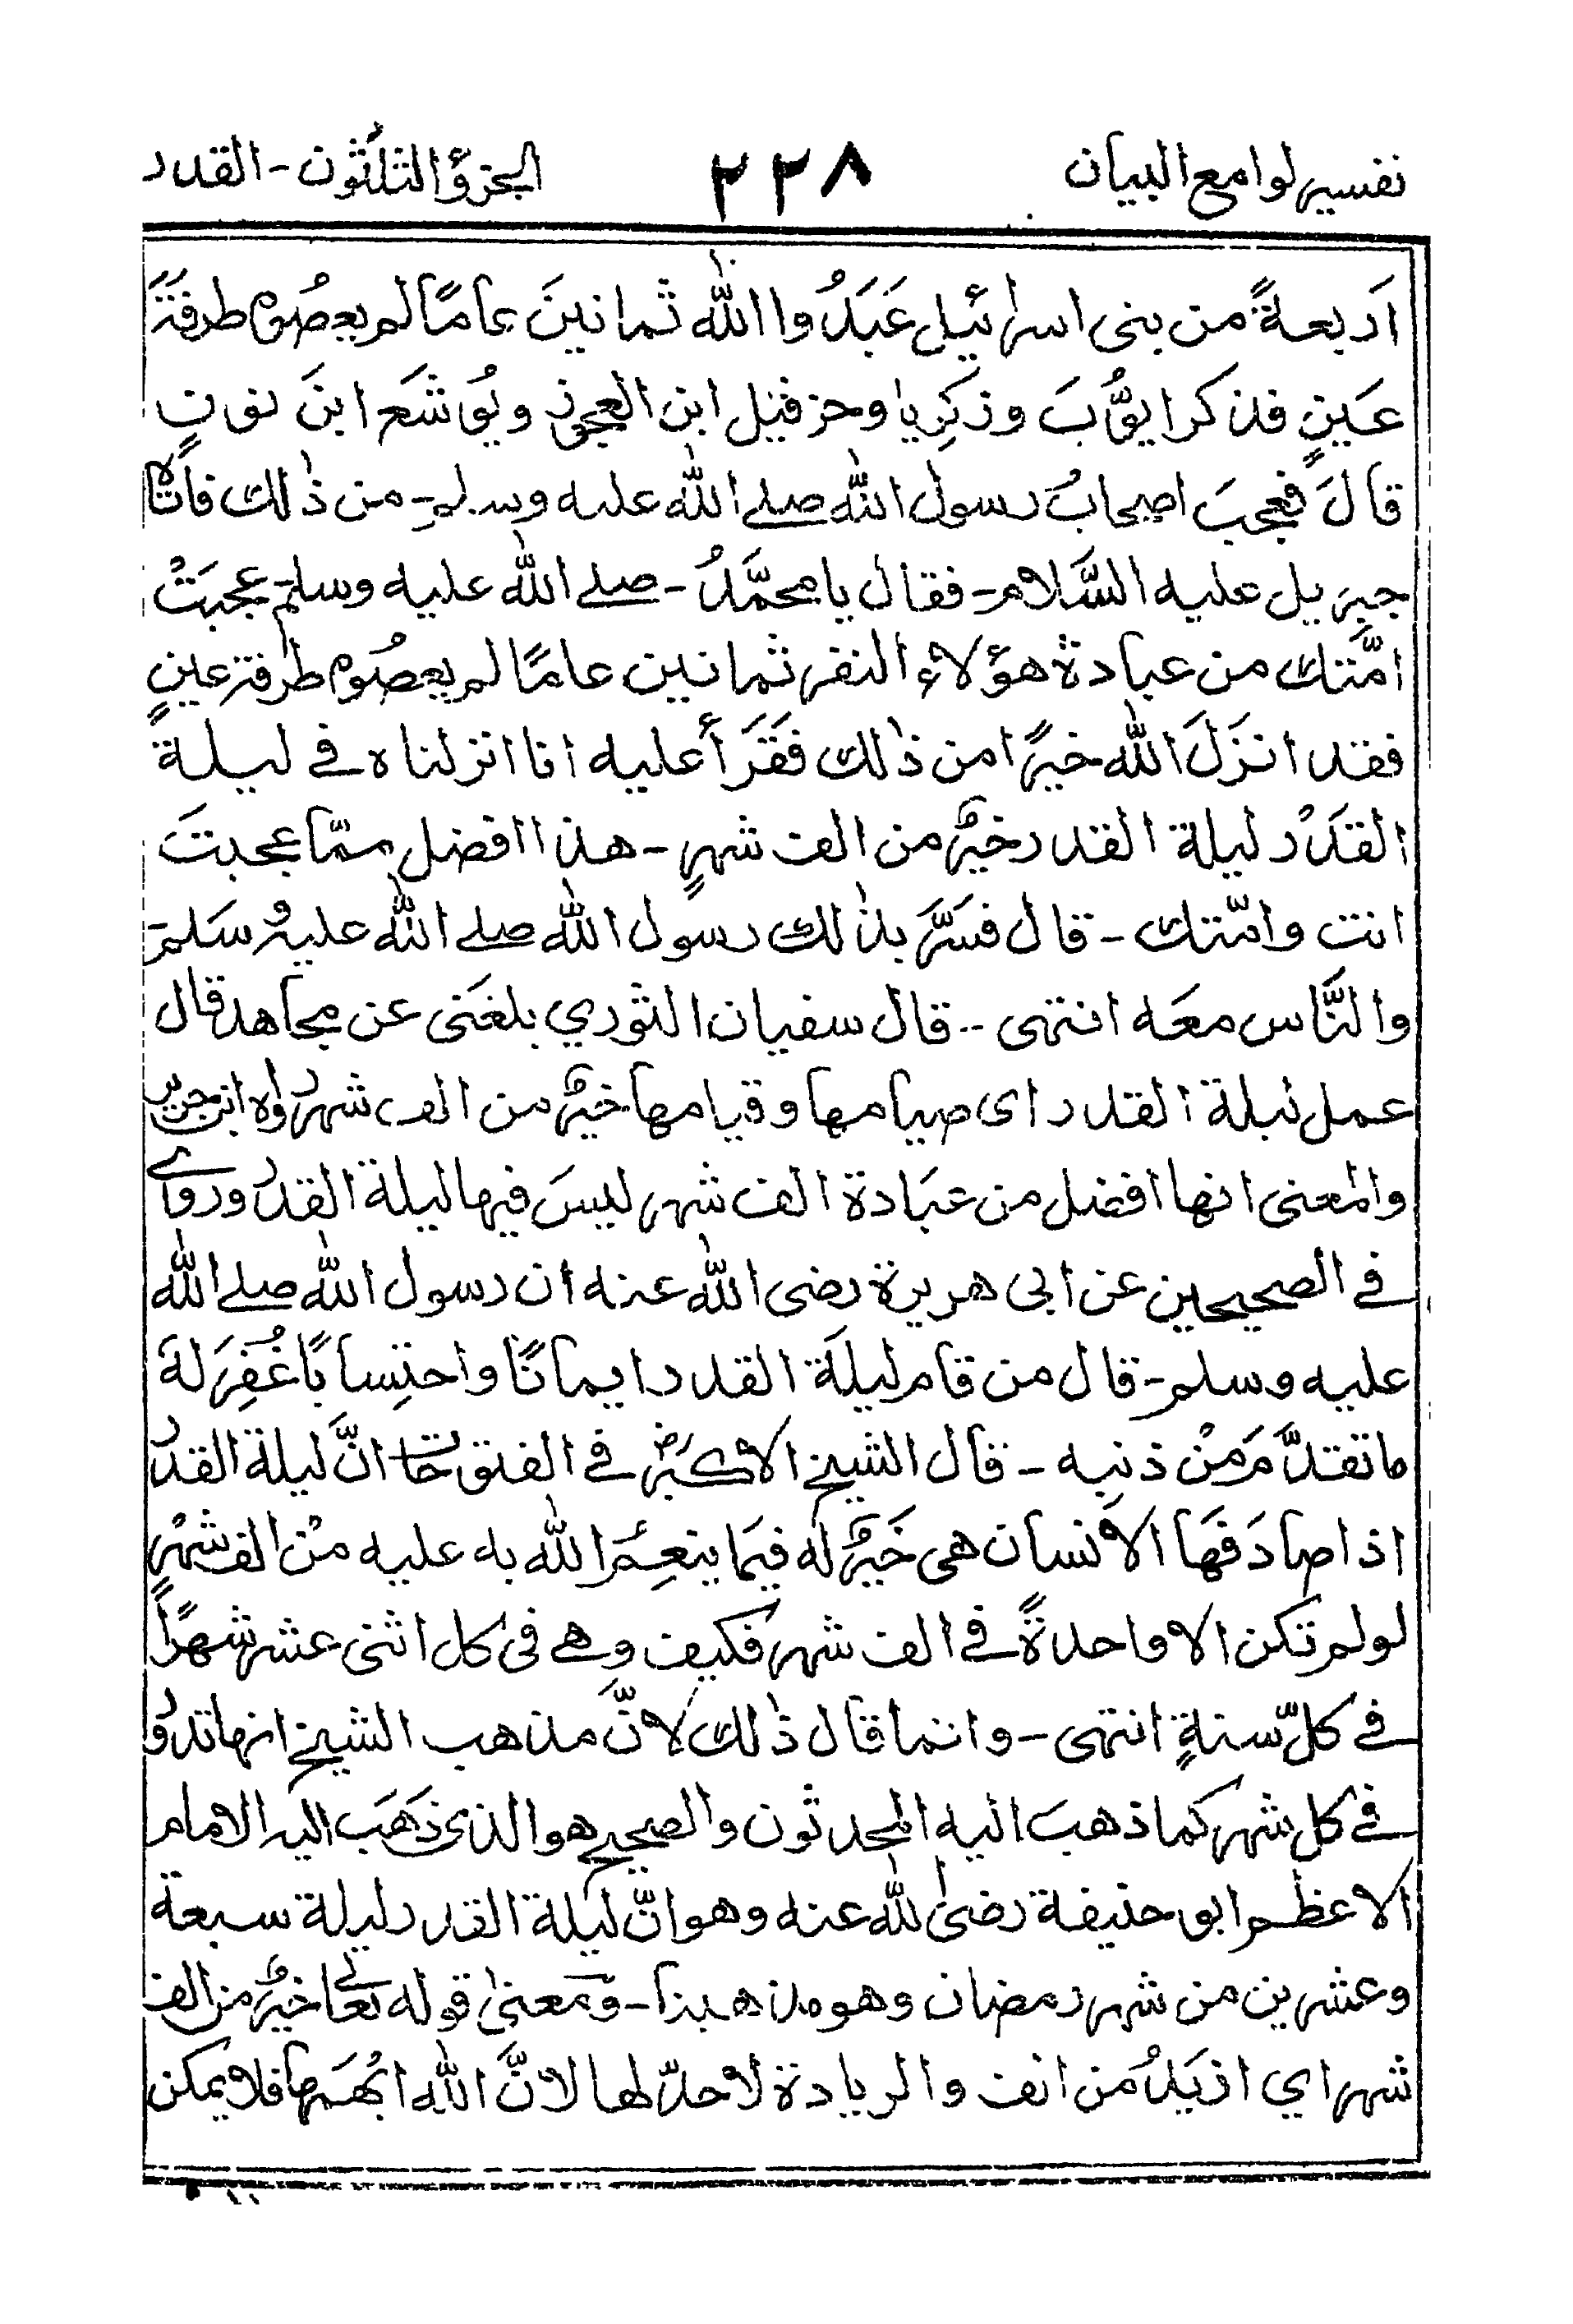 تفسير لوامع البيان ٢٢٨ الجزؤ الثلثون - القدر
اَربعةً من بنى اسرائيل عَبَدُوا اللّٰه ثمانينَ عامًا لم يعصُوه طرفةَ
عَينٍ فذكر ايوُّبَ وذكرِيا وحزقيل ابن العجوز ويُوشَع ابنَ نونٍ
قالَ فعجبَ اصحابُ رسول اللّٰه صلے اللّٰه عليه وسلم - من ذٰلك فاتاه
جبريل عليه السَّلام - فقال يا محمَّدُ - صلے اللّٰه عليه وسلم عجبَتْ
امَّتك من عبادة هؤلاء النفر ثمانين عامًا لم يعصُوه طرفة عينٍ
فقد انزَلَ اللّٰه خيرًا من ذٰلك فقَرَأ عليه انا انزلناه فے ليلة
القدْر ليلة القدر خيرٌ من الف شهرٍ - هذا افضل ممّا عجبتَ
انت وامّتك - قال فسَرَّ بذٰلك رسول اللّٰه صلے اللّٰه عليه وسَلم
والنَّاس معَه انتهى - قال سفيان الثوري بلغَنى عن مجاهد قال
عمل ليلة القدر اى صيامها وقيامها خيرٌ من الف شهر رواه ابن جرير
والمعنى انها افضل من عبَادة الف شهر ليسَ فيها ليلة القدر وروٰے
فے الصحيحين عن ابى هريرة رضى اللّٰه عنه ان رسول اللّٰه صلے اللّٰه
عليه وسلم - قال من قام ليلَة القدر ايمانًا واحتِسابًا غُفِرَ لهَ
ما تقدَّمَ منْ ذنبِه - قال الشيخ الاكبرَؓ فے الفتوحات انَّ ليلة القدر
اذا صادَفَهَا الانسان هى خَيرٌ له فيمَا ينعِمُ اللّٰه به عليه منْ الف شهْرٍ
لو لم تكن الا واحدةً فے الف شهر فكيف وهے فى كل اثنى عشر شهرًا
فے كلّ سنةٍ انتهى - وانما قال ذٰلك لانَّ مذهب الشيخ انها تدور
فے كل شهر كما ذهبَ اليه المحدثون والصحيح هو الذى ذهَبَ اليه الامام
الاعظم ابو حنيفة رضى اللّٰه عنه وهو انّ ليلة القدر ليلة سبعة
وعشرين من شهر رمضان وهو مذهبنا - ومَعنىٰ قوله تعالے خيرٌ من الف
شهر اي ازيَدُ من الف والزيادة لا حدّ لها لانَّ اللّٰه ابُهَمها فلا يمكن